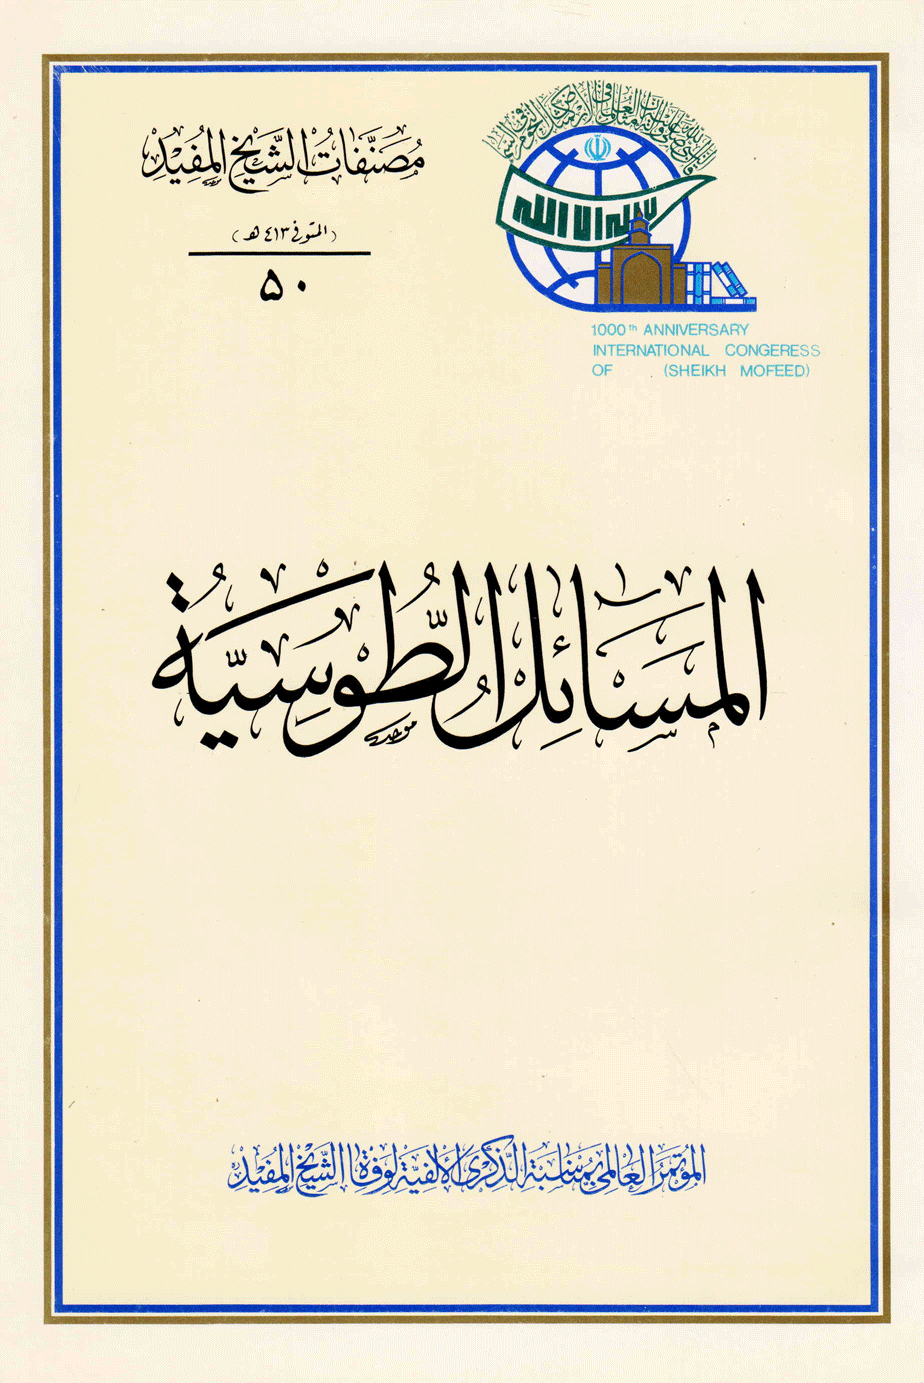 مُصَنَّفَاتُ الشَّيْخِ المُفِيْدِ
(المتوفى ٤١٣ هـ)
٥٠
لا إله إلا الله
1000th ANNIVERSARY
INTERNATIONAL CONGERESS
OF (SHEIKH MOFEED)
المَسَائِلُ الطُّوسِيَّةُ
موحد
المؤتمر العالمي بمناسبة الذكرى الألفية لوفاة الشيخ المفيد